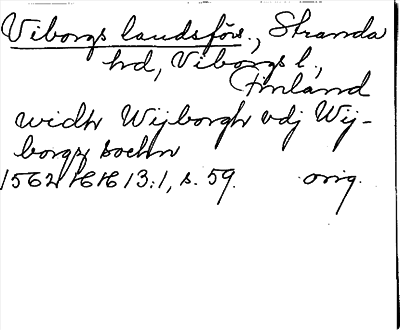 Viborgs landsförs., Stranda
hd, Viborgs l.,
Finland
widh Wijborgh vdj Wij-
borgz sochn
1562 KGK 13:1, s. 59. orig.